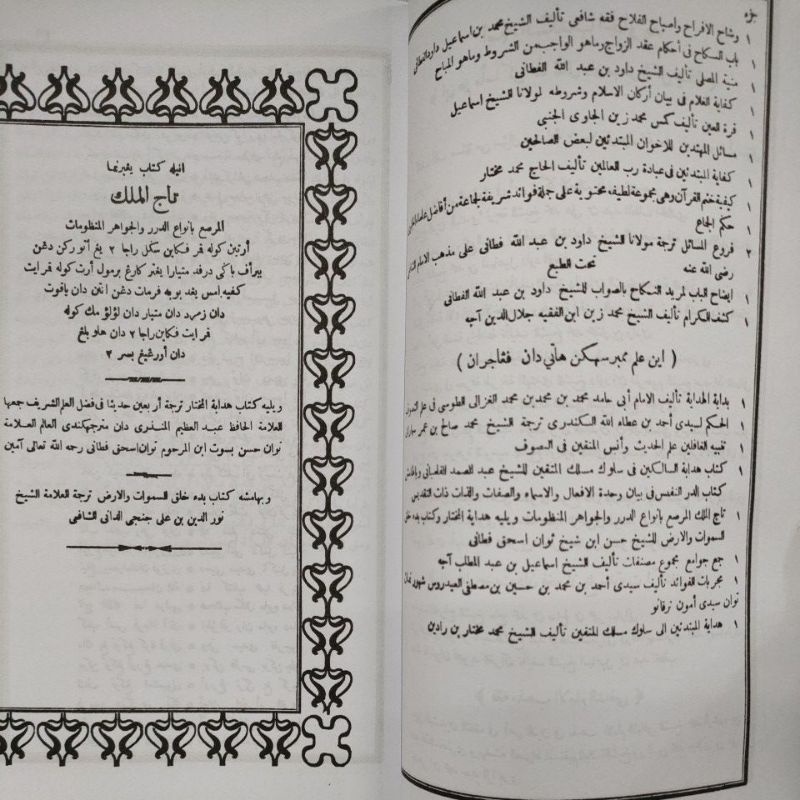 جزء
١ وشاح الافراح واصباح الفلاح فقه شافعى تأليف الشيخ محمد بن اسماعيل داود الفطانى
١ باب النكاح فى أحكام عقد الزواج وماهو الواجب من الشروط وماهو المباح
١ منية المصلى تأليف الشيخ داود بن عبد الله الفطانى
١ كفاية الغلام فى بيان أركان الاسلام وشروطه لمولانا الشيخ اسماعيل
١ قرة العين تأليف كس محمد زين الجاوى الجنبى
١ مسائل المهتدين للاخوان المبتدئين لبعض الصالحين
١ كفاية المبتدئين فى عبادة رب العالمين تأليف الحاج محمد مختار
١ كيفية ختم القرآن وهى مجموعة لطيفه محتوية على جملة فوائد شريفة لجماعة من أفاضل
حكم الجاع
٢ فروع المسائل ترجمة مولانا الشيخ داود بن عبد الله فطانى على مذهب الامام
رضى الله عنه تحت الطبع
١ ايضاح الباب لمريد النكاح بالصواب للشيخ داود بن عبد الله الفطانى
١ كشف الكرام تأليف الشيخ محمد زين ابن الفقيه جلال الدين آچه
( اين علم ممبرسهكن هاتي دان فڠاجران )
١ بداية الهداية تأليف الامام أبى حامد محمد بن محمد بن محمد الغزالى الطوسى فى علم التصوف
١ الحكم لسيدى أحمد بن عطاء الله السكندرى ترجمة الشيخ محمد صالح بن عمر
تنبيه الغافلين علم الحديث وأنس المتقين فى التصوف
١ كتاب هداية السالكين فى سلوك مسلك المتقين للشيخ عبد الصمد الفلمبانى
كتاب الدر النفيس فى بيان وحدة الافعال والاسماء والصفات والذات ذات التقديس
١ تاج الملك المرصع بأنواع الدرر والجواهر المنظومات ويليه هداية المختار وكتاب بدء خلق
السموات والارض للشيخ حسن ابن شيخ توان اسحق فطانى
١ جمع جوامع مجموع مصنفات تأليف الشيخ اسماعيل بن عبد المطلب آچه
١ مجربات الفوائد تأليف سيدى أحمد بن محمد بن حسين بن مصطفى العيدروس شهور
توان سيدى أمون ترقانو
١ هداية المبتدئين الى سلوك مسلك المتقين تأليف الشيخ محمد مختار بن رادين
انيله كتاب يڠبرنما
تاج الملك
المرصع بأنواع الدرر والجواهر المنظومات
أرتين كوله فرمكاين سكل راجا ٢ يڠ أتوركن دڠن
ببراف باكى درفد متيارا يڠتركارڠ برمول أرت كوله فرايت
كفيه امس يڠد بوبه فرمات دڠن انتن دان ياقوت
دان زمرد دان متيار دان لؤلؤ مك كوله
فرايت فكاين راجا ٢ دان هلوبالڠ
دان أورڠيڠ بسر ٢
ويليه كتاب هداية المختار ترجمة أربعين حديثا فى فضل العلم الشريف جمعها
العلامة الحافظ عبد العظيم المنذرى دان مترجمكندى العالم العلامة
توان حسن بسوت ابن المرحوم توان اسحق فطانى رحمه الله تعالى آمين
وبهامشه كتاب بدء خلق السموات والارض ترجمة العلامة الشيخ
نور الدين بن على جنجى الدانى الشافعى